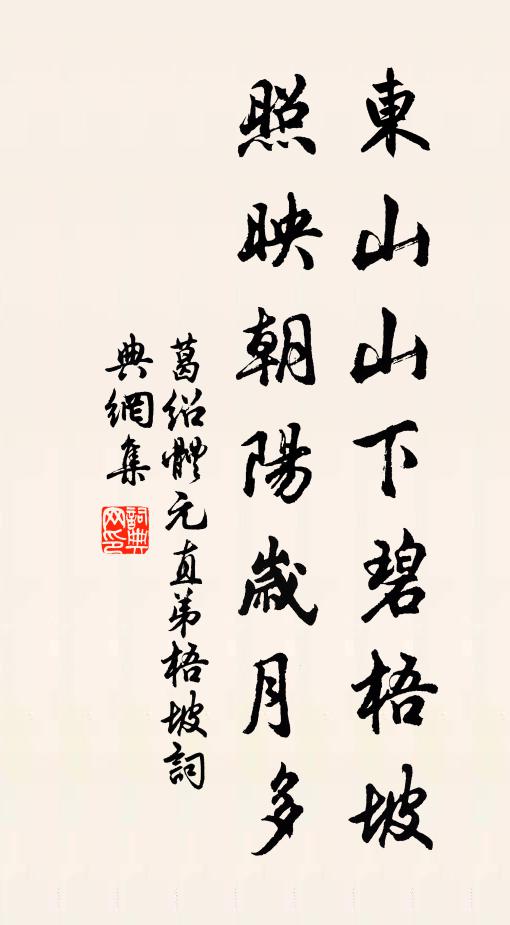 東山山下碧梧坡
照映朝陽歲月多
葛绍體元直弟梧坡詞
典網集
詞典网印